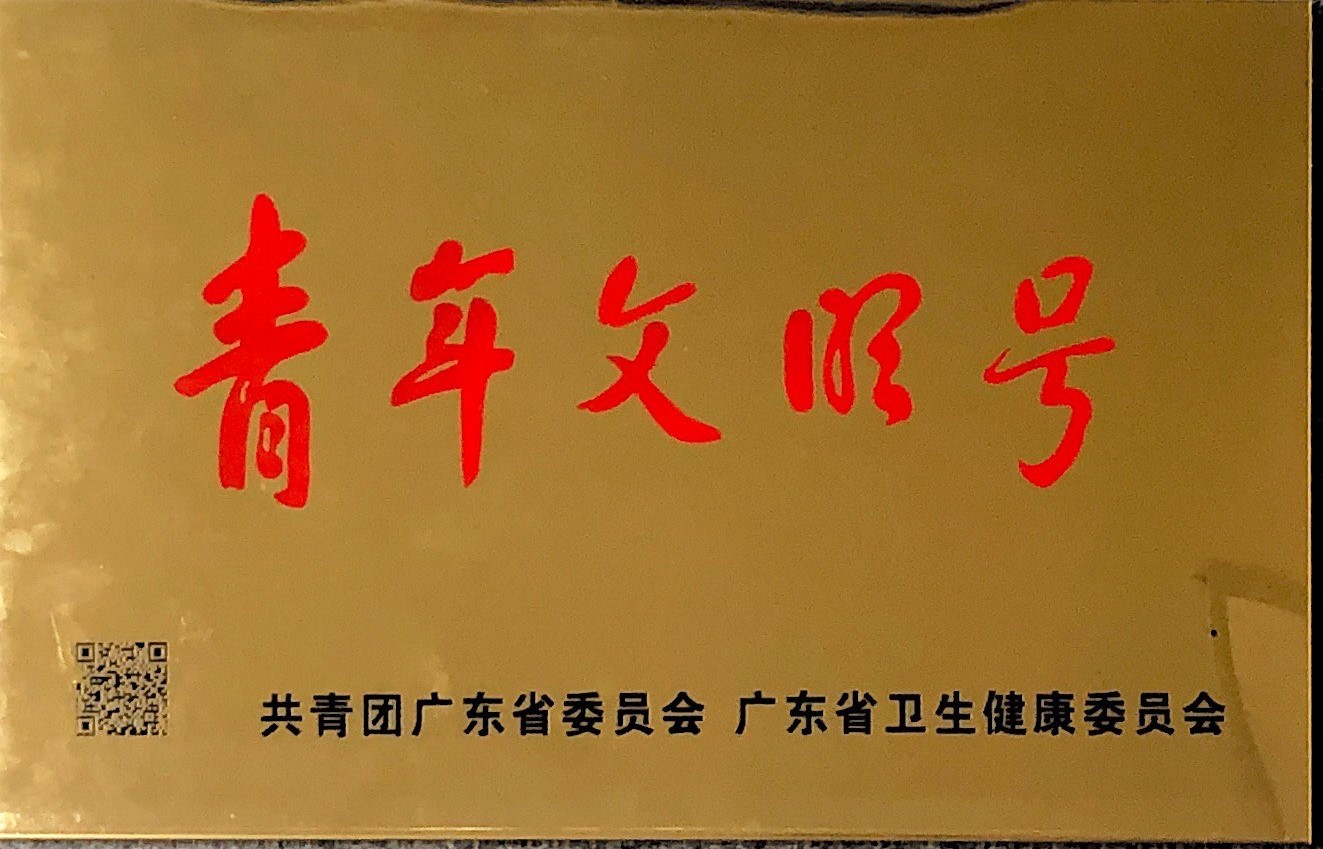 青年文明号
共青团广东省委员会 广东省卫生健康委员会